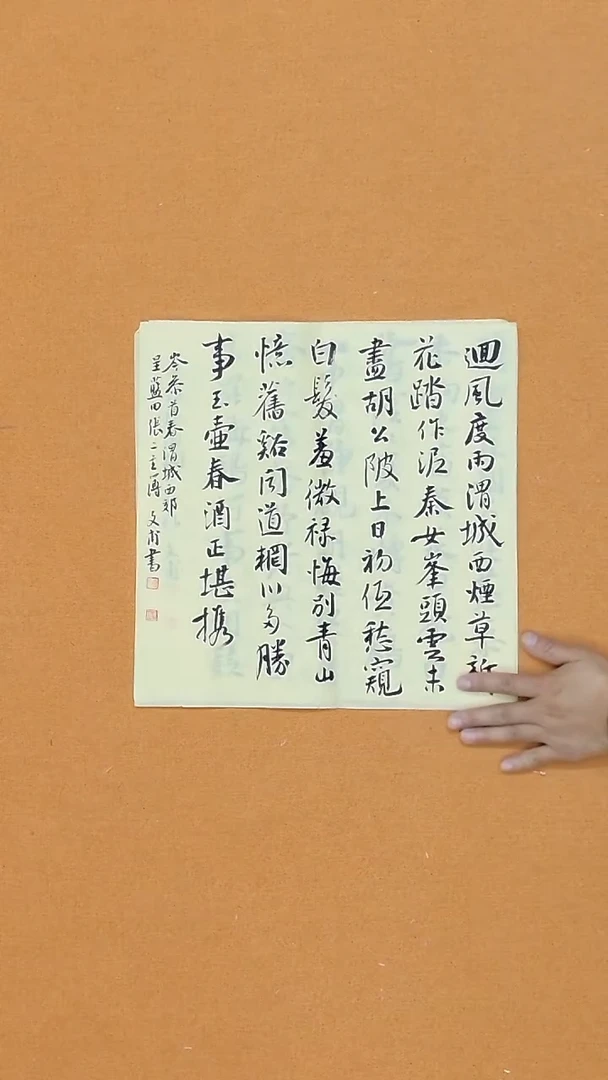 迴風度雨渭城西煙草新
花踏作泥秦女峯頭雲未
盡胡公陂上日初低愁窺
白髮羞微禄悔別青山
憶舊谿聞道輞川多勝
事玉壺春酒正堪携
岑参首春渭城西郊
呈藍田張二主簿 書